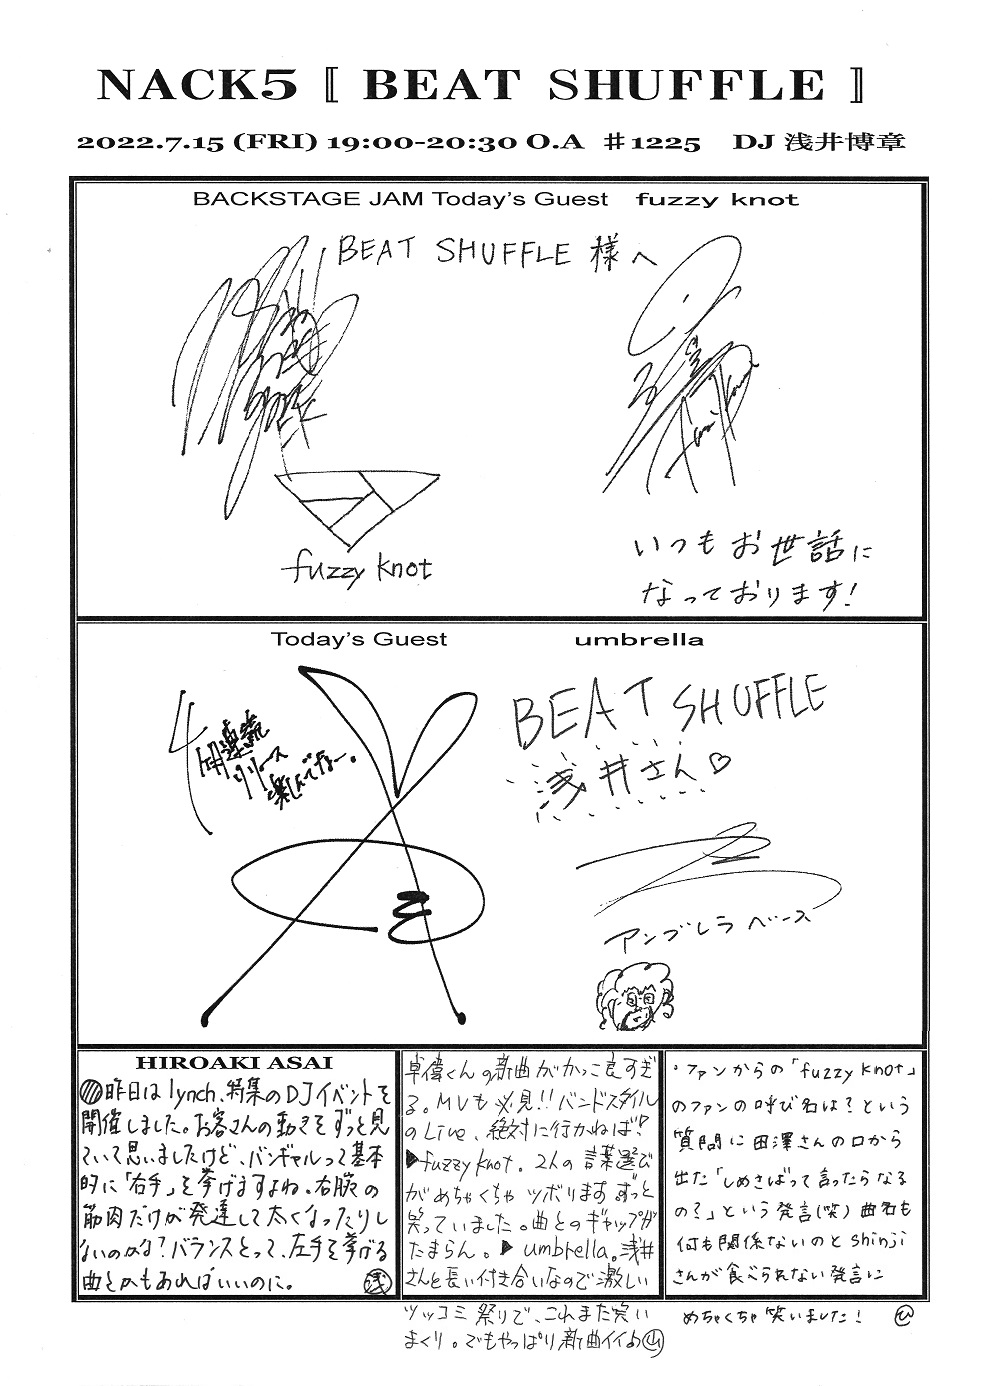 NACK5 〚 BEAT SHUFFLE 〛
2022.7.15 (FRI) 19:00-20:30 O.A #1225 DJ 浅井博章
BACKSTAGE JAM Today's Guest fuzzy knot
BEAT SHUFFLE 様へ
fuzzy knot
いつもお世話に
なっております!
Today's Guest umbrella
リリース
楽しんでなー。
BEAT SHUFFLE
浅井さん♡
アンブレラ ベース
HIROAKI ASAI
昨日はlynch.特集のDJイベントを
開催しました。お客さんの動きをずっと見
ていて思いましたけど、バンギャルって基本
的に「右手」を挙げますよね。右腕の
筋肉だけが発達して太くなったりし
ないのかな?バランスとって、左手を挙げる
曲とかもあればいいのに。 浅
卓偉くんの新曲がかっこ良すぎ
る。MVも必見!!バンドスタイル
のLive、絶対に行かねば!?
▶fuzzy knot。2人の言葉選び
がめちゃくちゃツボりますずっと
笑っていました。曲とのギャップが
たまらん。▶umbrella。浅井
さんと長い付き合いなので激しい
ツッコミ祭りで、これまた笑い
まくり。でもやっぱり新曲イイね 山
・ファンからの「fuzzy knot」
のファンの呼び名は?という
質問に田澤さんの口から
出た「しめさばって言ったらなる
の?」という発言(笑)曲名も
何も関係ないのとshinji
さんが食べられない発言に
めちゃくちゃ笑いました! ひ